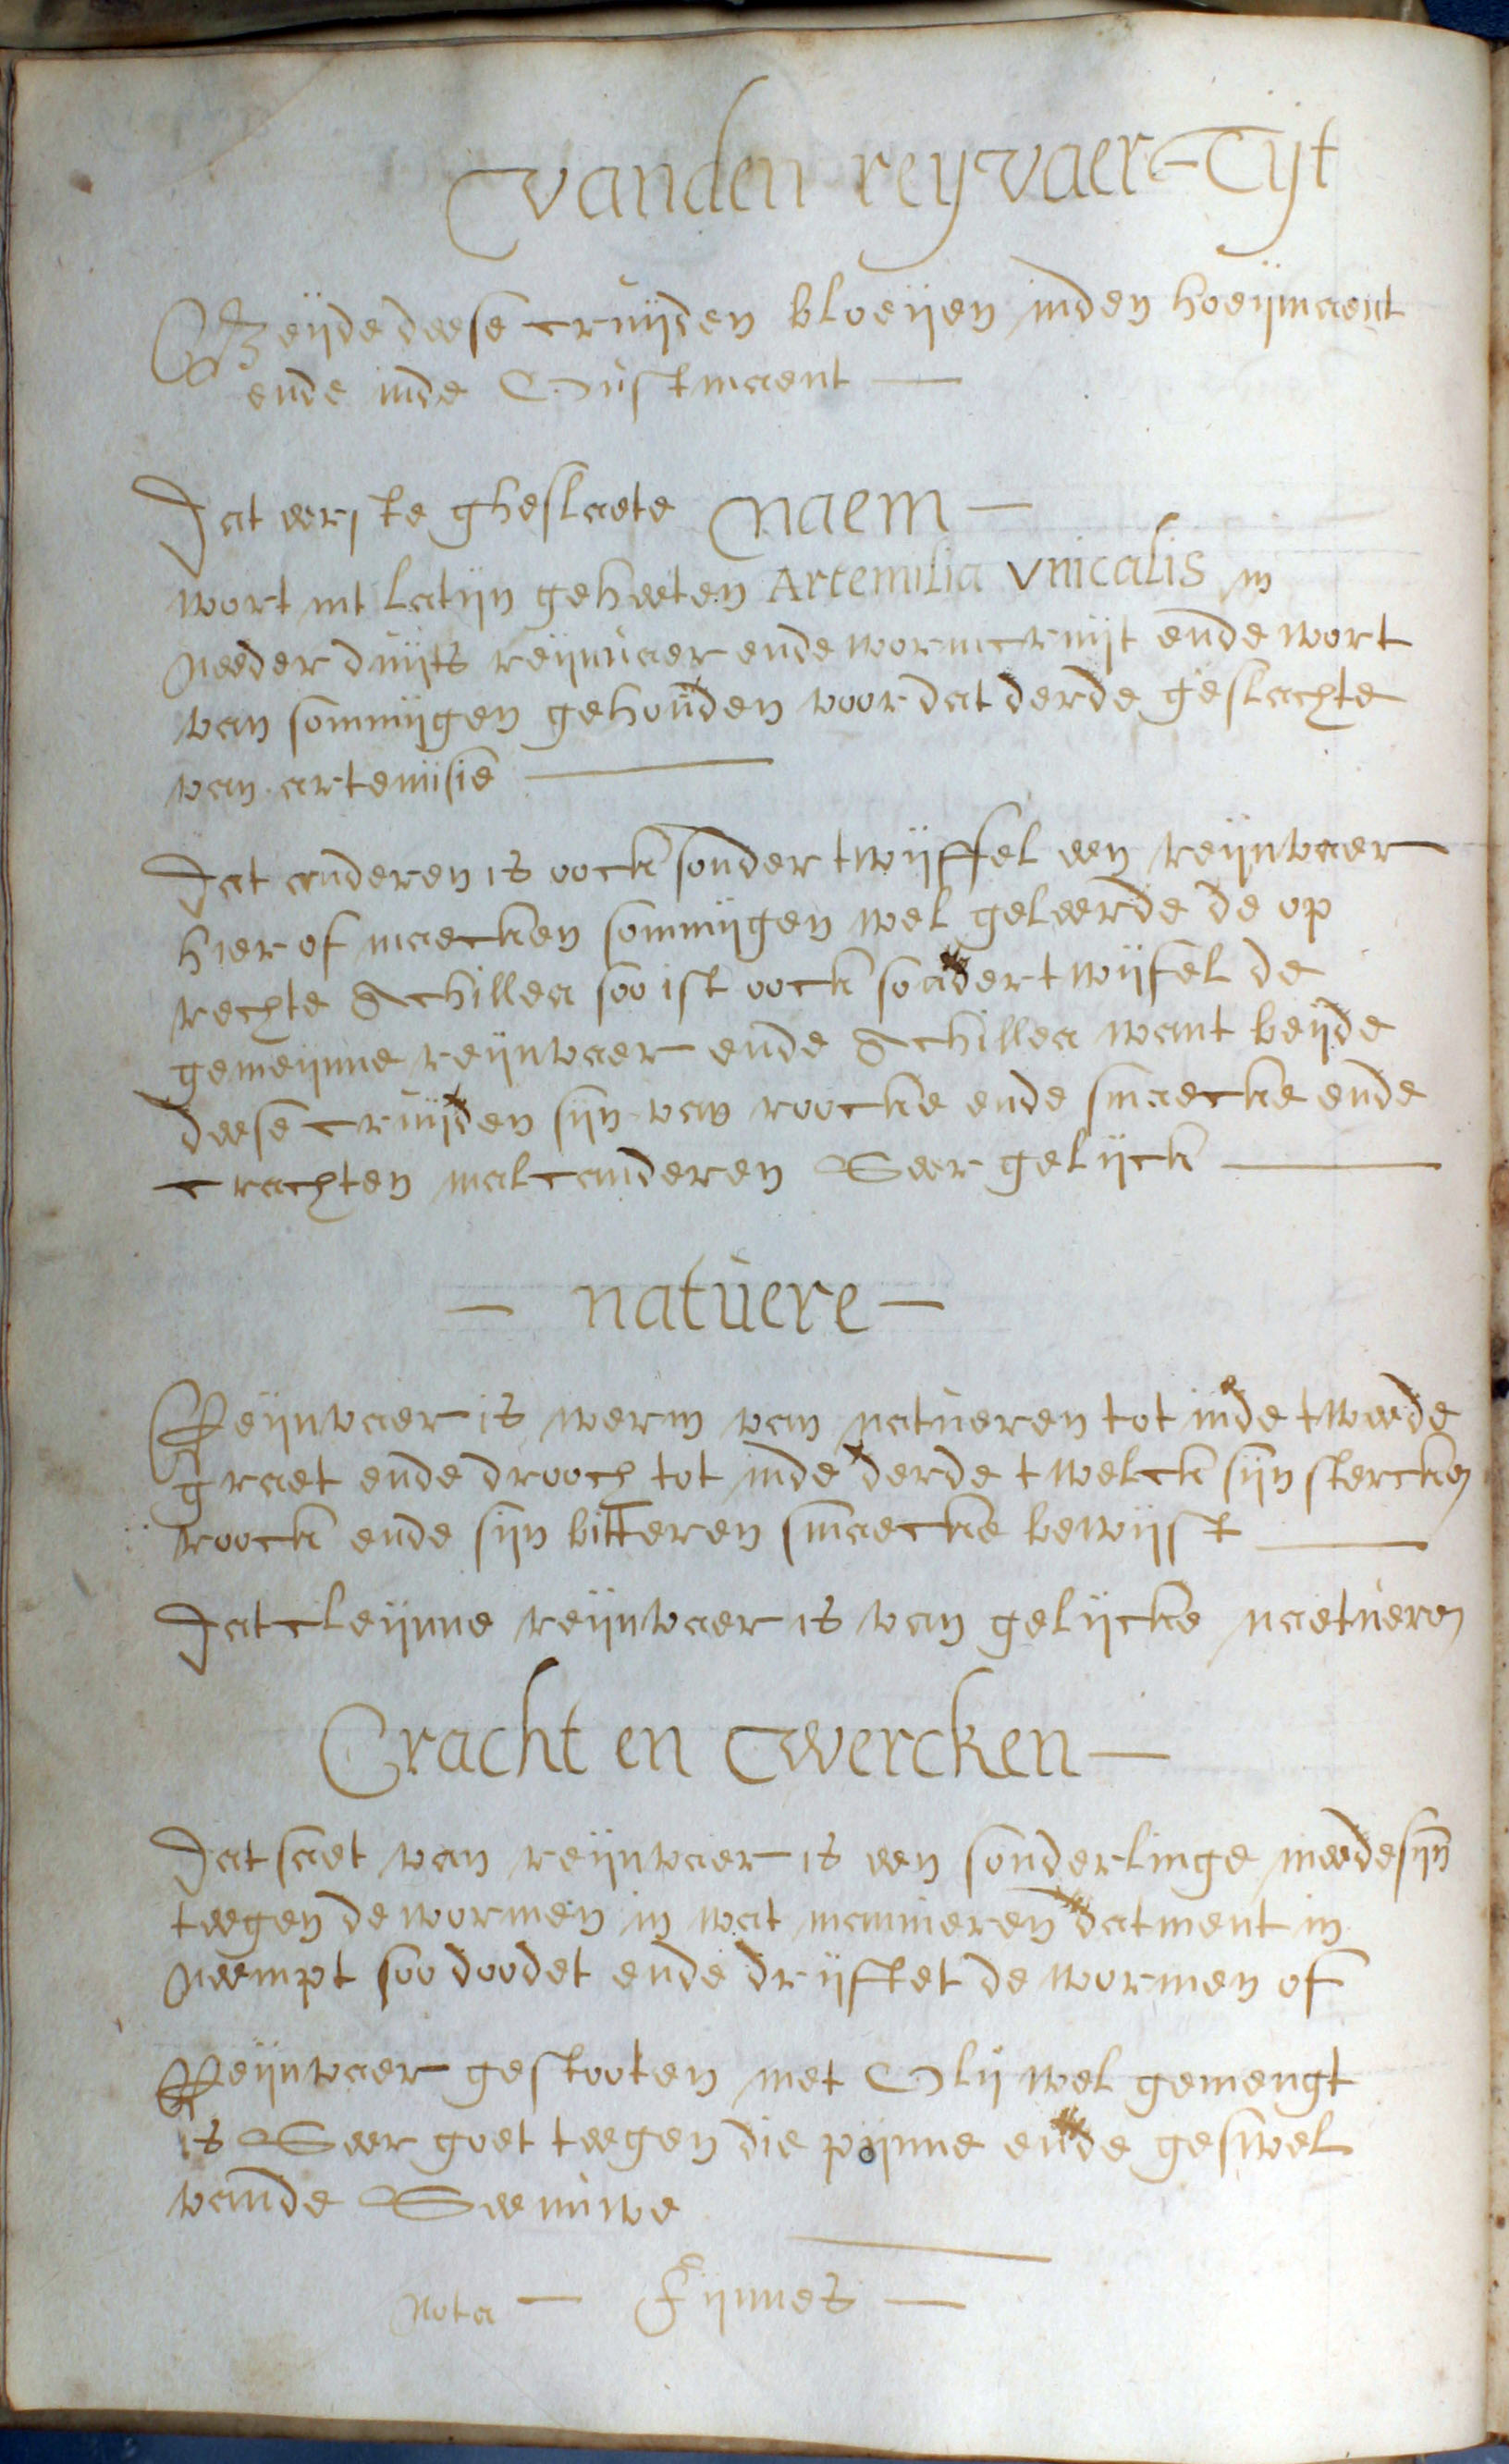 vanden reyvaer - Tijt
Beÿde deese cruÿden bloeÿen inden hoeÿmaent
ende inde Oustmaent —
Dat eerste gheslaete Naem —
wort int latijn geheeten Artemilia vnicalis in
neederduijts reijnvaer ende wormcruijt ende wort
van sommijgen gehouden voor dat derde geslachte
van artemisie —
Dat anderen is oock sonder twijffel een reijnvaer
hier of maecken sommijgen wel geleerde de op
rechte Achillea soo ist oock sonder twijfel de
gemeijnne reijnvaer ende Achillea want beijde
deese cruijden sijn van roocke ende smaecke ende
crachten malcanderen Seer gelijck —
— natuere —
Reijnvaer is werm van natueren tot inde tweede
graet ende drooch tot inde derde twelck sijn stercken
roock ende sijn bitteren smaecke bewijst —
Dat cleijnne reijnvaer is van gelijcke naetueren
Cracht en Wercken —
Dat saet van reijnvaer is een sonderlinge meedesijn
teegen de wormen in wat mannieren datment in
neempt soo doodet ende drijftet de wormen of
Reijnvaer gestooten met Olij wel gemengt
is Seer goet teegen die pijnne ende geswel
vande Seenuwe
Nota — Fijnnes —